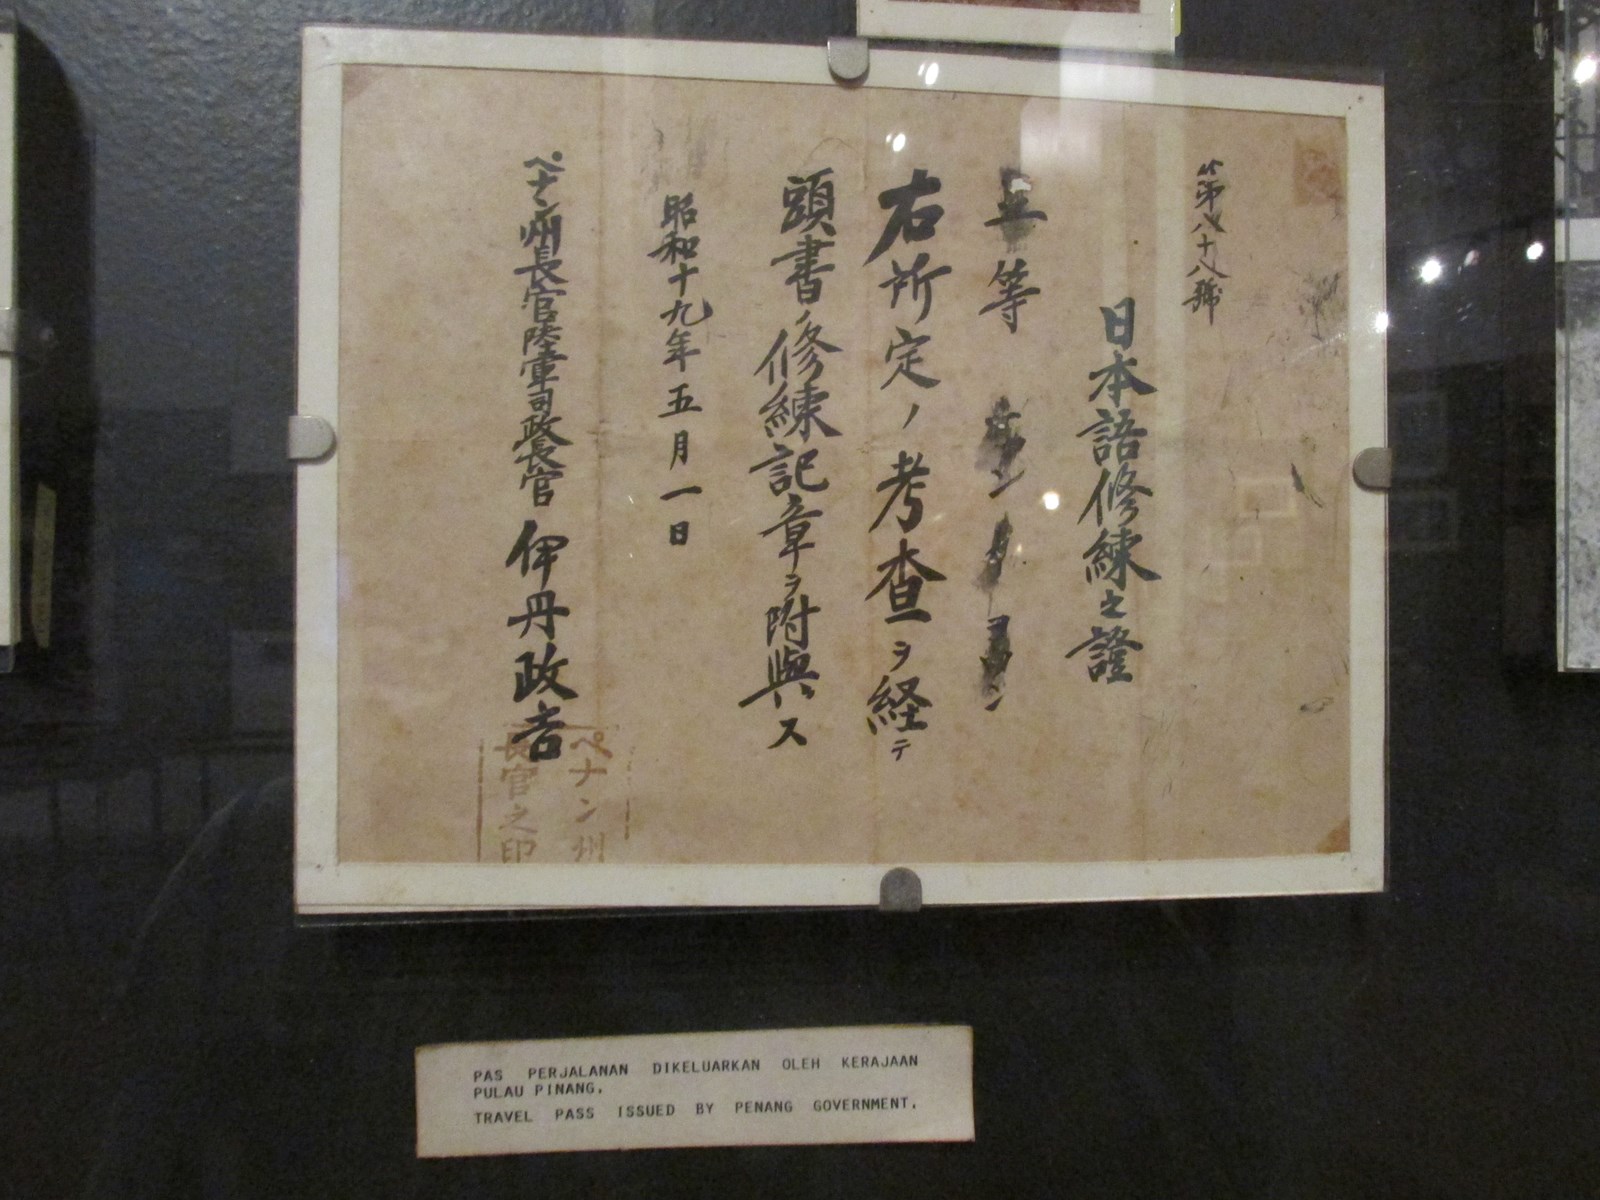 第八十八號
日本語修練之證
等
右所定ノ考査ヲ経テ
頭書ノ修練記章ヲ附與ス
昭和十九年五月一日
ペナン州長官陸軍司政長官 伊丹政吉
ペナン州
長官之印
PAS PERJALANAN DIKELUARKAN OLEH KERAJAAN
PULAU PINANG.
TRAVEL PASS ISSUED BY PENANG GOVERNMENT.